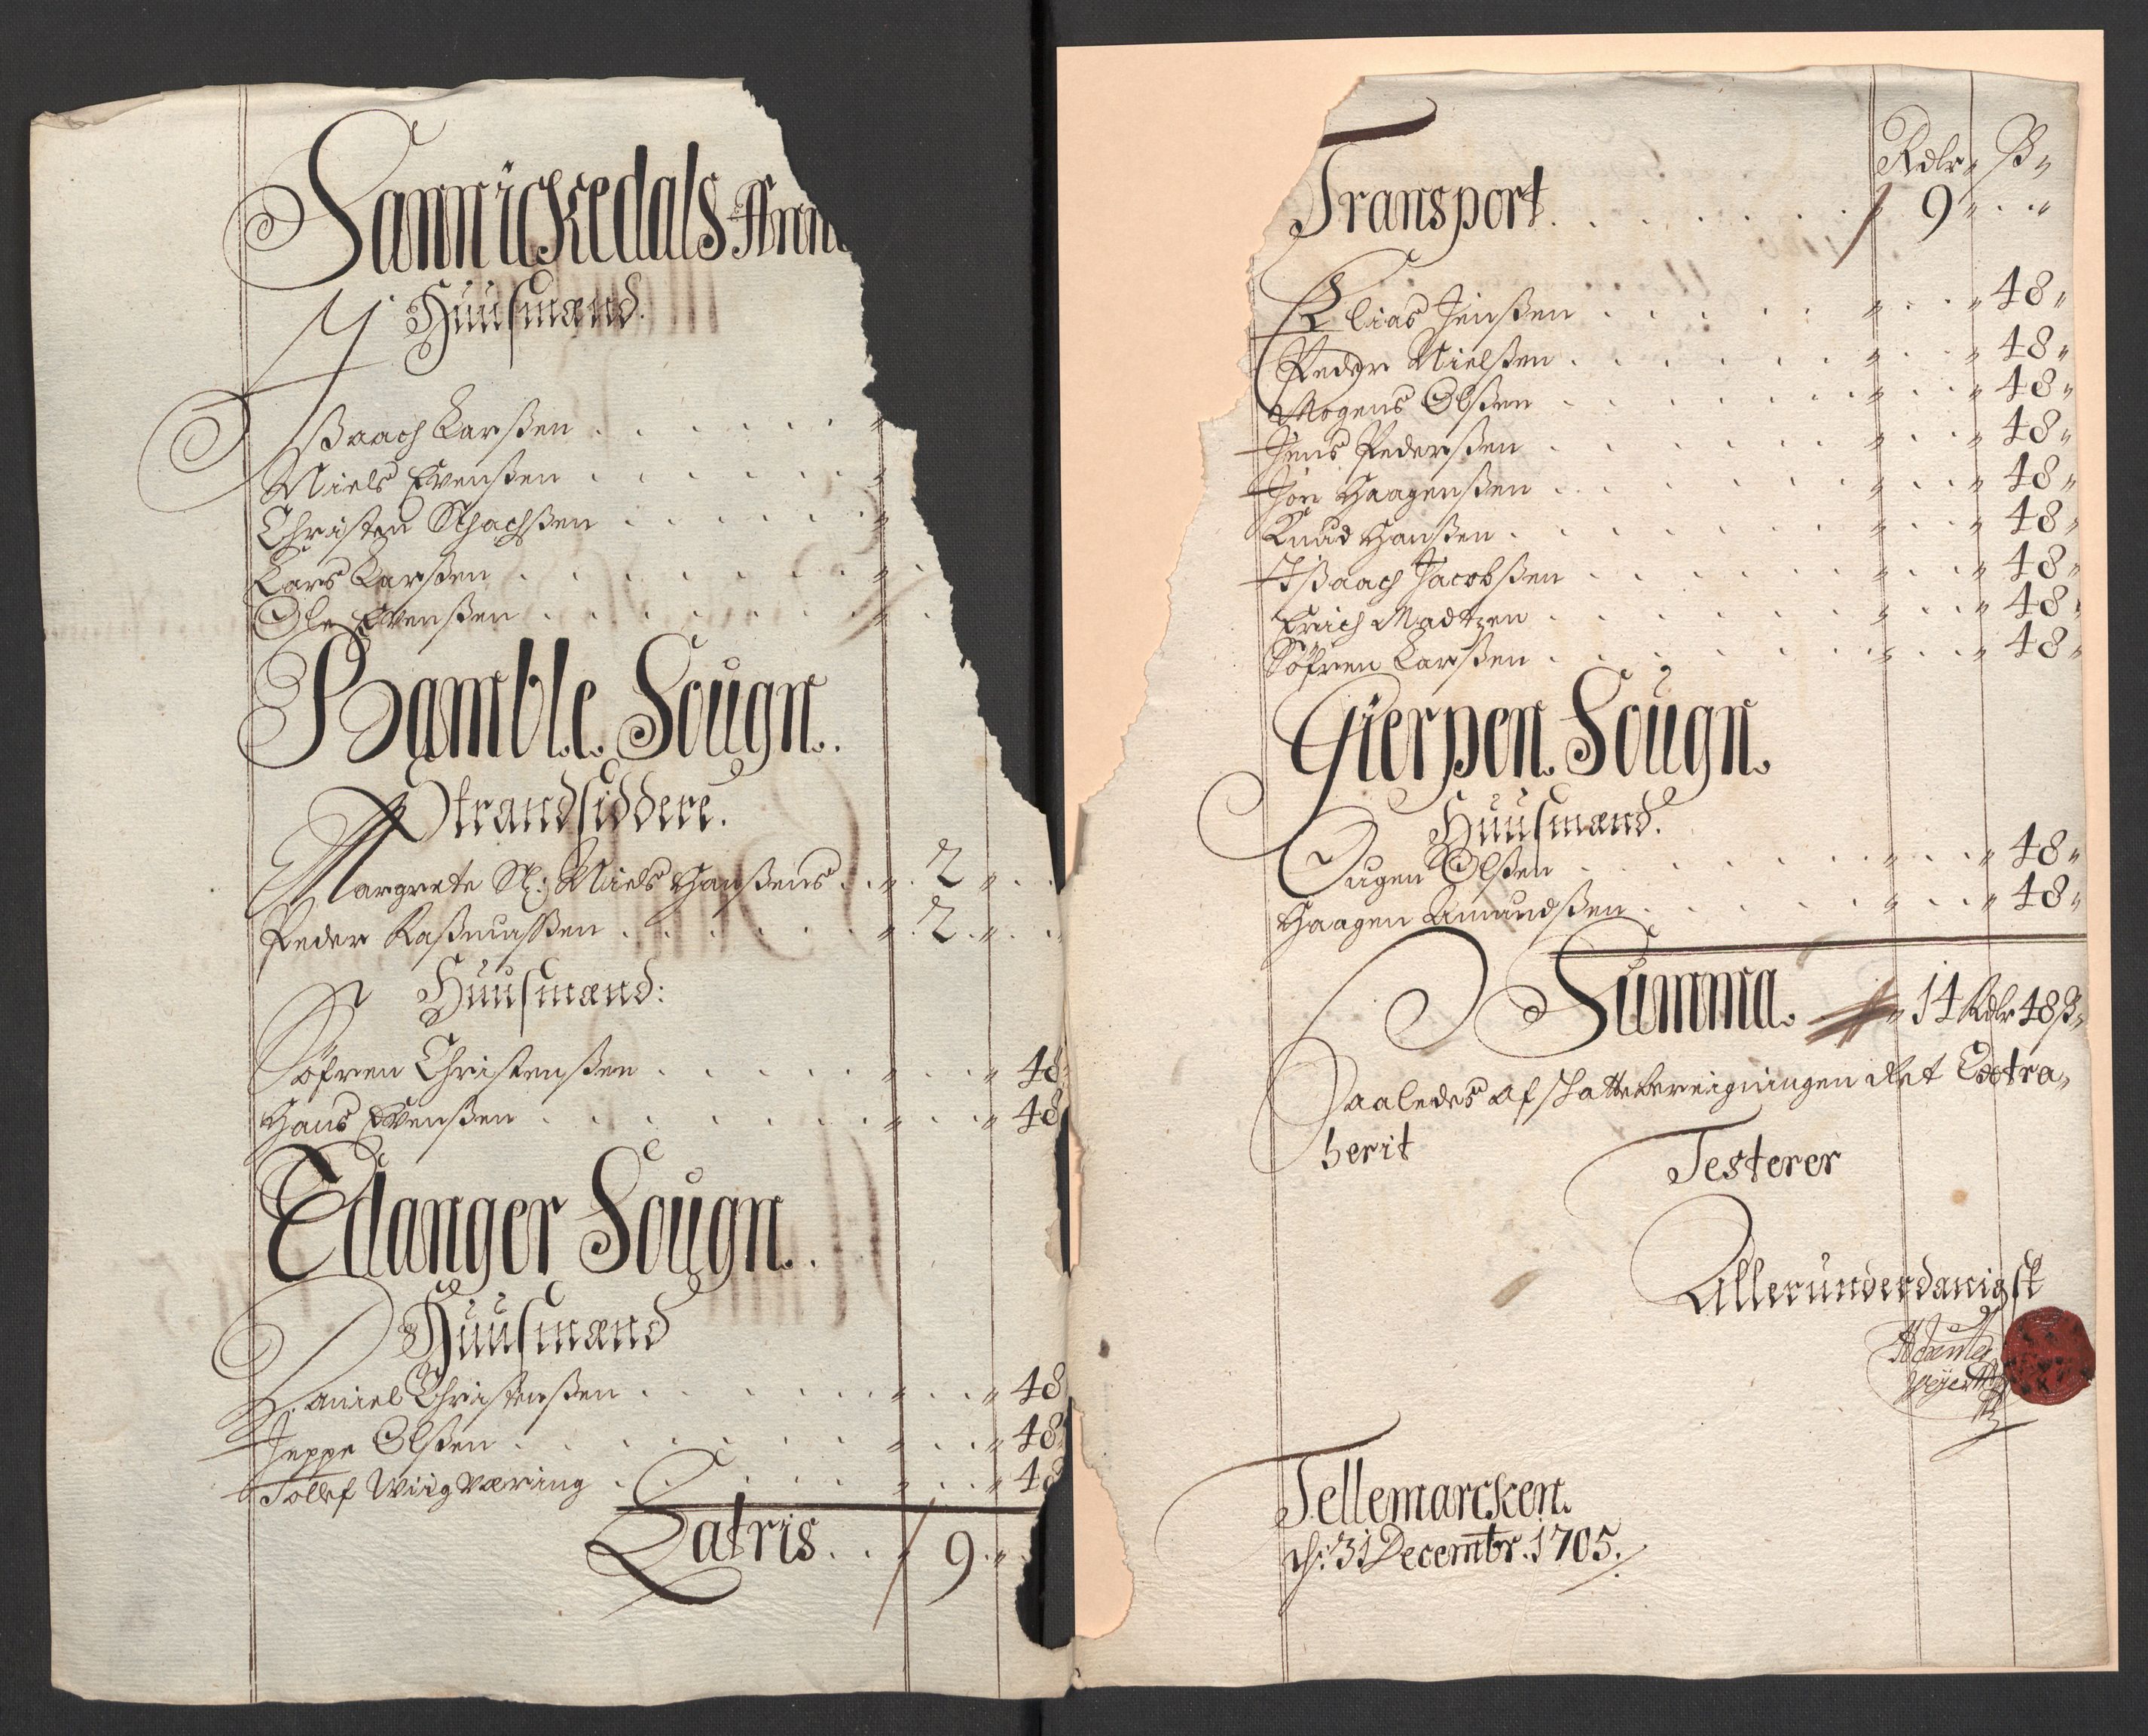 Sannickedals
Huusmænd.
Jßaach Larßen
Niels Evenßen
Christen
Lars Larßen
Ole Evenßen
Bamble Sougn.
Strandsiddere.
Margrete Sl: Niels Hanßens 2
Peder Raßmusßen 2
Huusmænd:
Söfren Christenßen 48
Hans Evenßen 48
Edanger Sougn.
Huusmænd
Daniel Christenßen 48
Jeppe Olßen 48
Tollef Wiigværing 48
Latris 9
Rdlr ß
Transport 9
Elias Jenßen 48
Peder Nielßen 48
Mogens Olßen 48
Jens Pederßen 48
Jon Haagenßen 48
Knud Hanßen 48
Jßaach Jacobßen 48
Erich Madtzen 48
Söfren Larßen 48
Gierpen Sougn.
Huusmænd.
Ougen Olßen 48
Haagen Amundßen 48
Summa. 14 Rdlr 48 ß
Saaledes af skattebereigningen Ret Extra,
herit
Testerer
Allerunderdanigst
Tellemarcken.
d: 31 Decembr. 1705.